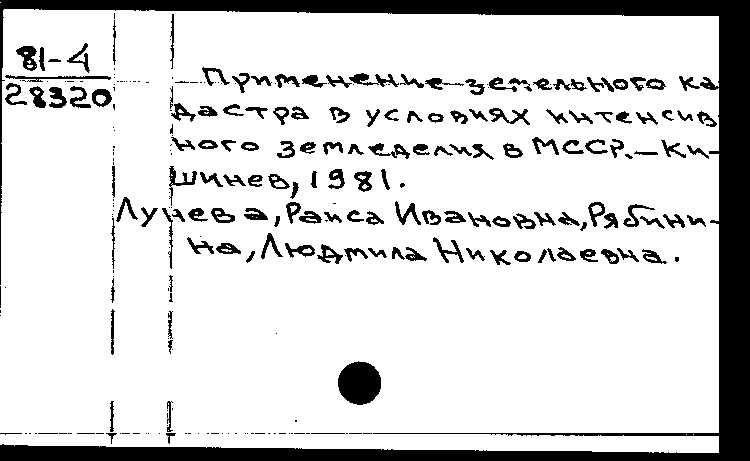 81-4
28320
Применение земельного ка
дастра в условиях интенсив
ного земледелия в МССР.—Ки-
шинев, 1981.
Лунева, Раиса Ивановна, Рябини-
на, Людмила Николаевна.